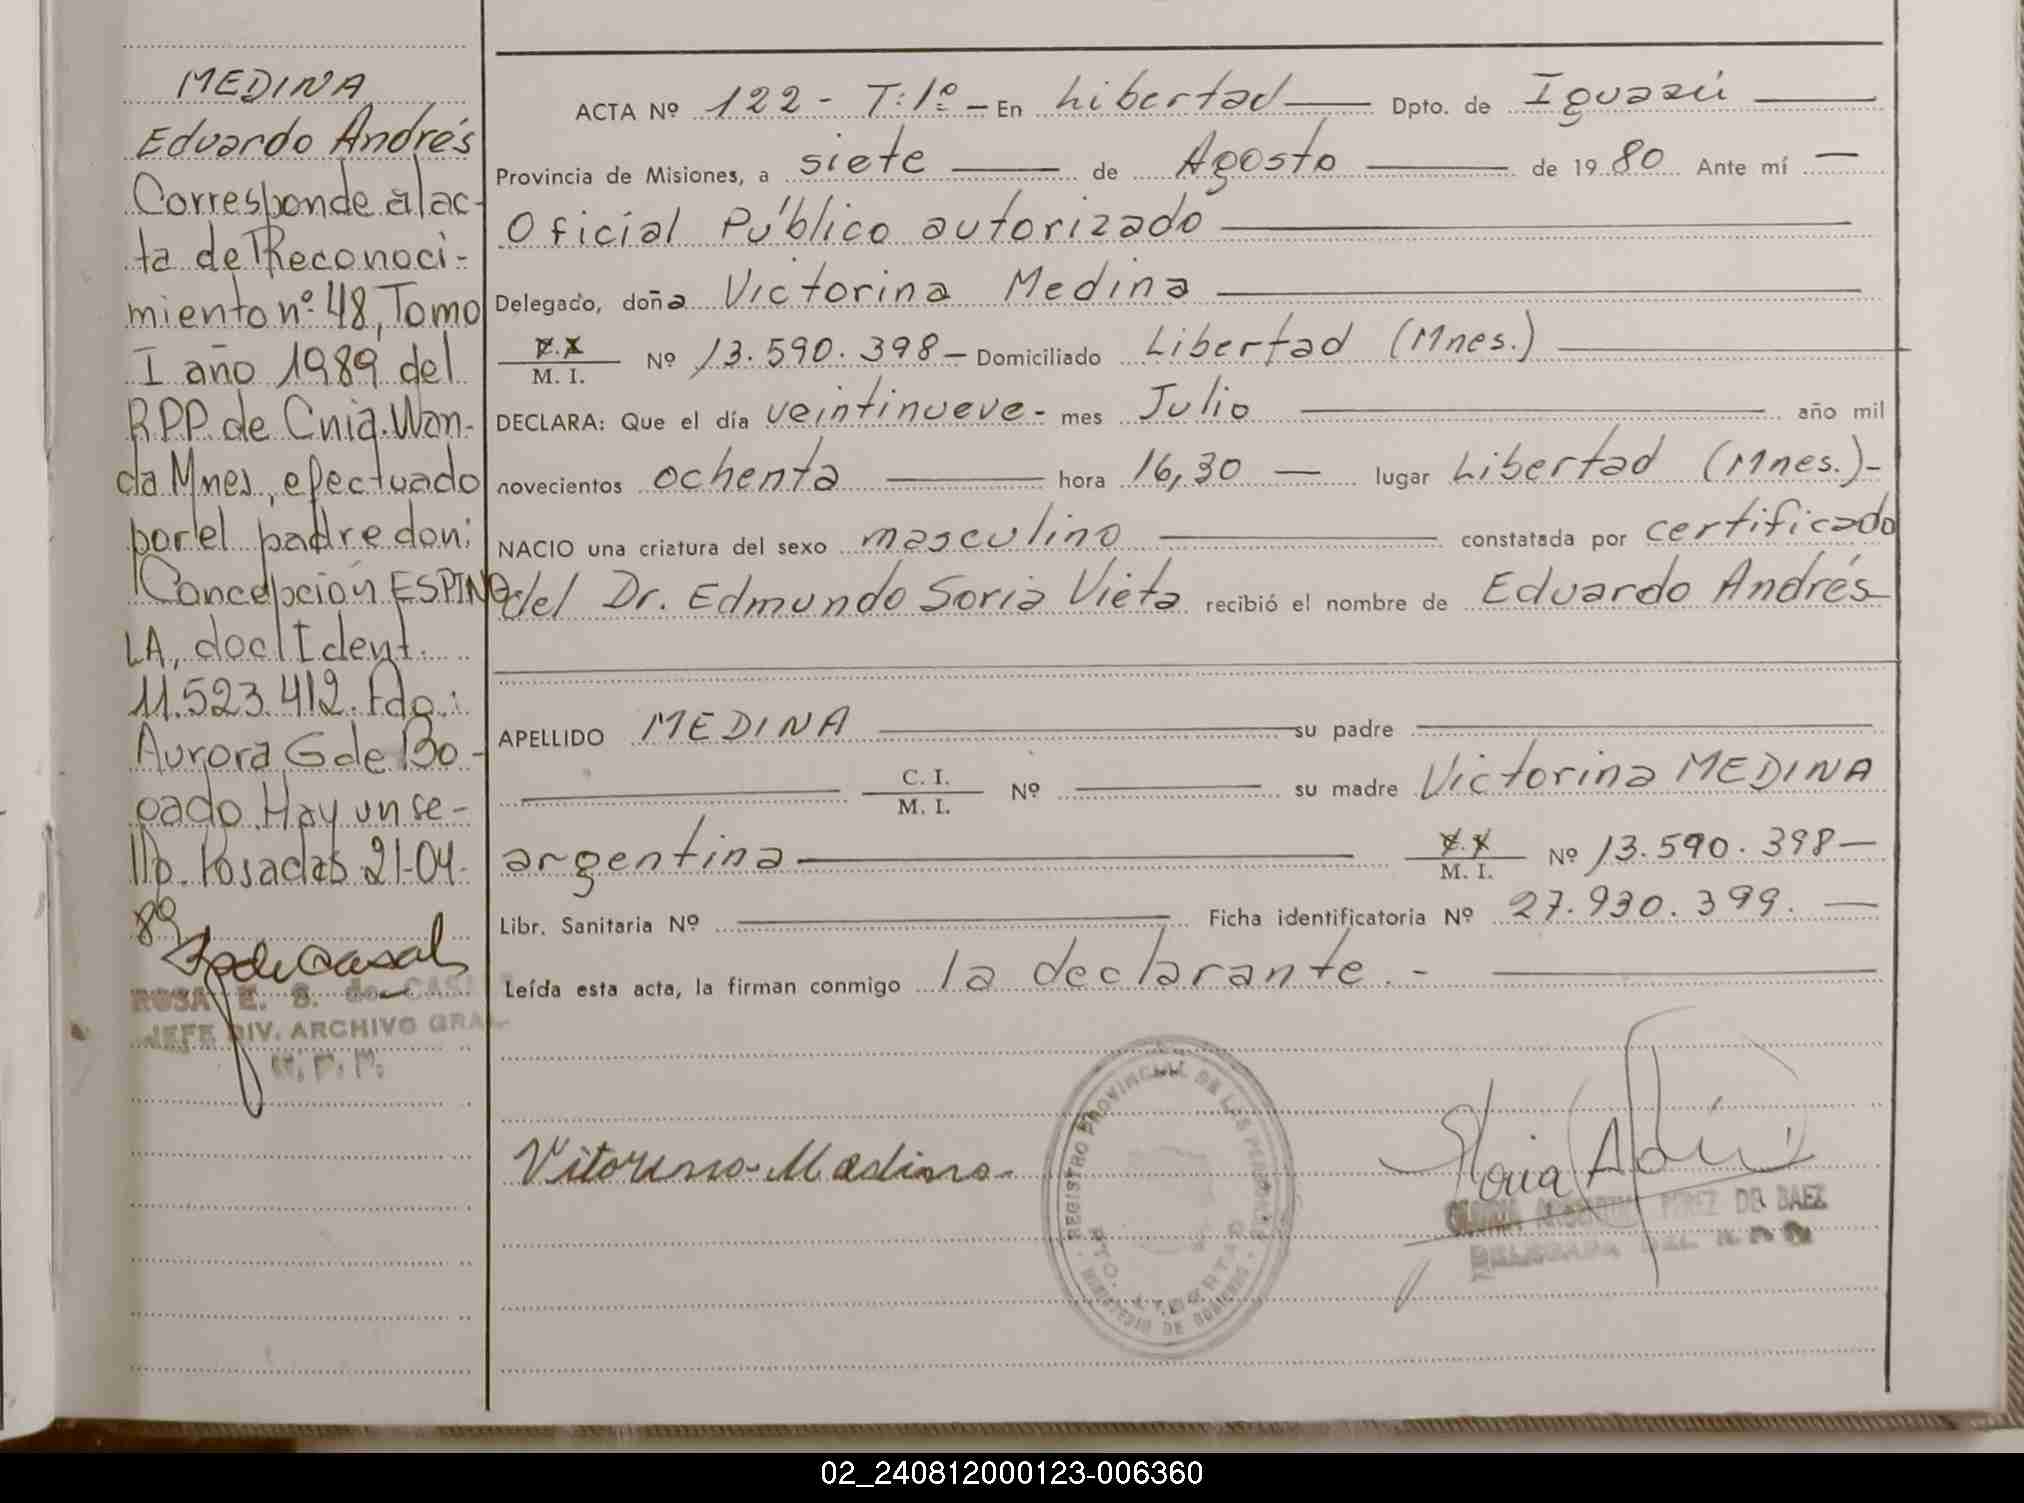 MEDINA
Eduardo Andrés
Corresponde al ac-
ta de Reconoci-
miento nº 48, Tomo
I año 1989 del
RPP. de Cnia. Wan-
da Mnes, efectuado
por el padre don:
Concepción ESPINO
LA, doc. Ident.
11.523.412. Fdo.:
Aurora G de Bo-
gado. Hay un se-
llo. Posadas 21-04-
89
ROSA E. S. de CASAL
JEFE DIV. ARCHIVO GRAL
ACTA Nº 122 - T: 1º - En Libertad Dpto. de Iguazú
Provincia de Misiones, a siete de Agosto de 1980 Ante mí
Oficial Público autorizado
Delegado, doña Victorina Medina
M. I. Nº 13.590.398 - Domiciliado Libertad (Mnes.)
DECLARA: Que el día veintinueve - mes Julio año mil
novecientos ochenta hora 16,30 lugar Libertad (Mnes.)-
NACIO una criatura del sexo masculino constatada por certificado
del Dr. Edmundo Soria Vieta recibió el nombre de Eduardo Andrés
APELLIDO MEDINA su padre
C. I. M. I. Nº su madre Victorina MEDINA
argentina M. I. Nº 13.590.398 -
Libr. Sanitaria Nº Ficha identificatoria Nº 27.930.399.
Leída esta acta, la firman conmigo la declarante. -
REGISTRO PROVINCIAL DE LAS PERSONAS
MINISTERIO DE GOBIERNO
PTO. LIBERTAD
Vitorina Medina
GLORIA ARGENTINA PEREZ DE BAEZ
DELEGADA DEL
02_240812000123-006360